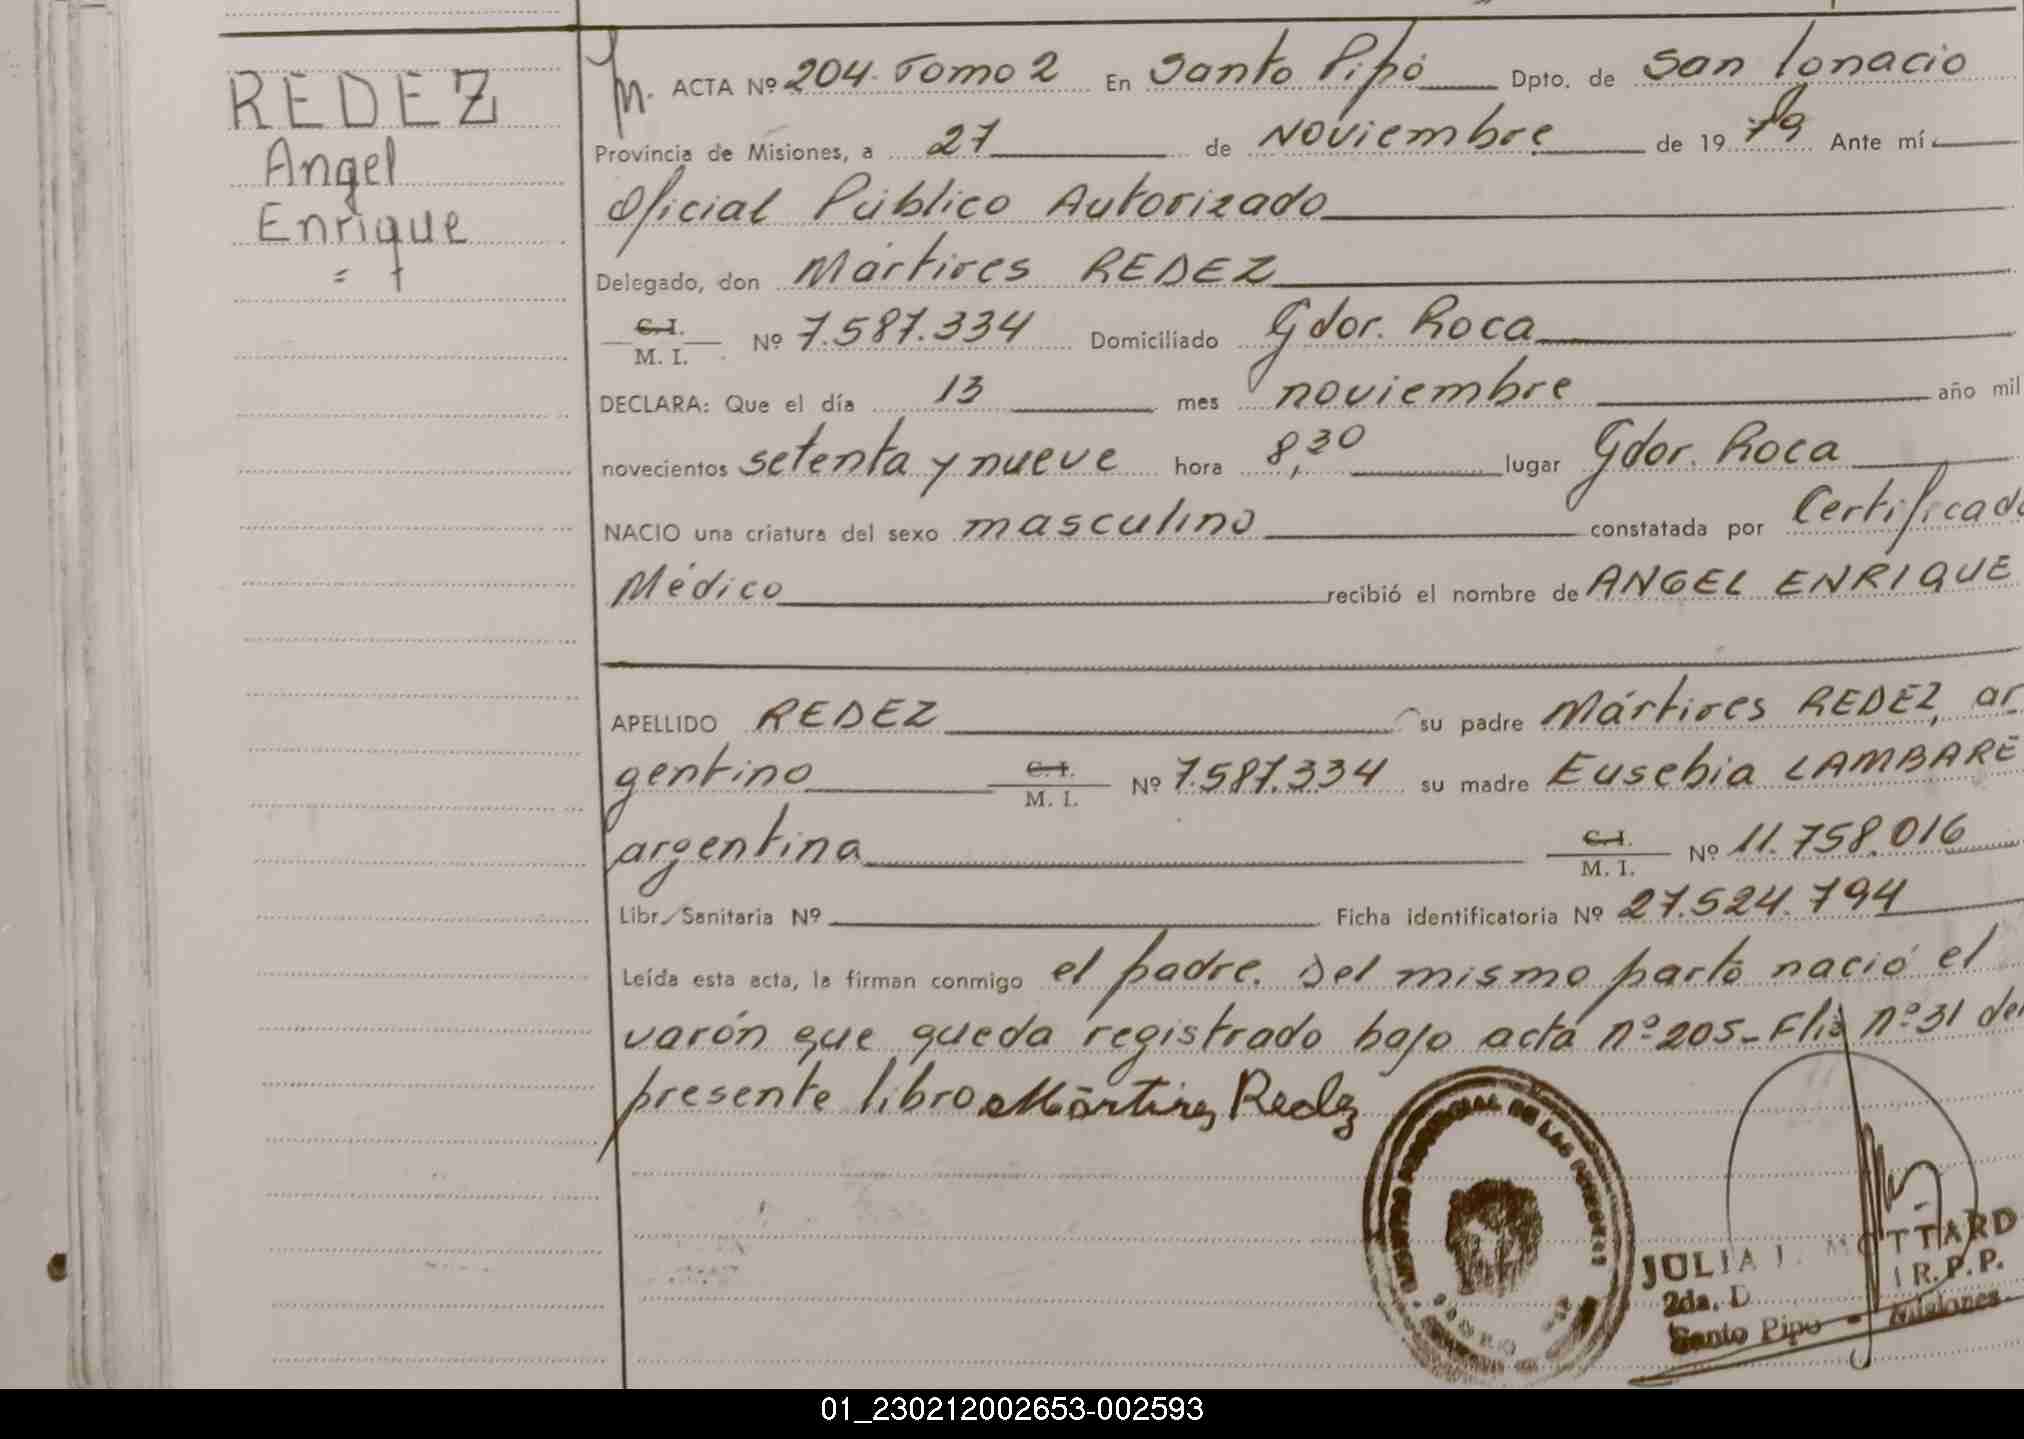 REDEZ
Angel
Enrique
= †
M. ACTA Nº 204. Tomo 2 En Santo Pipó Dpto. de San Ignacio
Provincia de Misiones, a 27 de Noviembre de 19 79 Ante mí
Oficial Público Autorizado
Delegado, don Mártires REDEZ
C.I.
M. I. Nº 7.587.334 Domiciliado Gdor. Roca
DECLARA: Que el día 13 mes noviembre año mil
novecientos setenta y nueve hora 8,30 lugar Gdor. Roca
NACIO una criatura del sexo masculino constatada por Certificado
Médico recibió el nombre de ANGEL ENRIQUE
APELLIDO REDEZ su padre Mártires REDEZ, ar
gentino C.I. M. I. Nº 7.587.334 su madre Eusebia LAMBARÉ
argentina C.I. M. I. Nº 11.758.016
Libr. Sanitaria Nº Ficha identificatoria Nº 27.524.794
Leída esta acta, la firman conmigo el padre. Del mismo parto nació el
varón que queda registrado bajo acta nº 205- Flio nº 31 del
presente libro Mártires Redez
REGISTRO PROVINCIAL DE LAS PERSONAS
JULIA I. MOTTARD
2da. D I R.P.P.
Santo Pipo - Misiones.
01_230212002653-002593